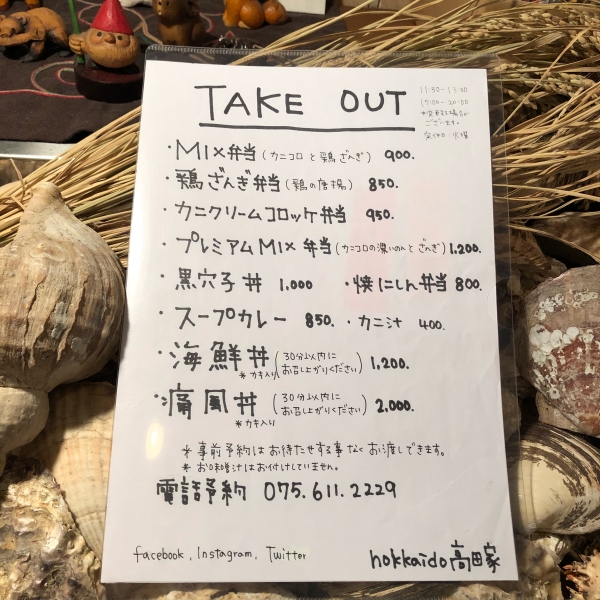 TAKE OUT
11:30-13:30
17:00-20:00
※変更する場合が
ございます。
定休日:火曜
・MIX弁当(カニコロと鶏ざんぎ) 900.
・鶏ざんぎ弁当(鶏の唐揚) 850.
・カニクリームコロッケ弁当 950.
・プレミアムMIX弁当(カニコロの濃いのんとざんぎ) 1,200.
・黒穴子丼 1,000 ・焼にしん弁当 800.
・スープカレー 850. ・カニ汁 400.
・海鮮丼(30分以内にお召し上がりください) 1,200.
※カキ入り
・痛風丼(30分以内にお召し上がりください) 2,000.
※カキ入り
※事前予約はお待たせする事なくお渡しできます。
※お味噌汁はお付けしていません。
電話予約 075.611.2229
facebook, Instagram, Twitter
hokkaido高田家